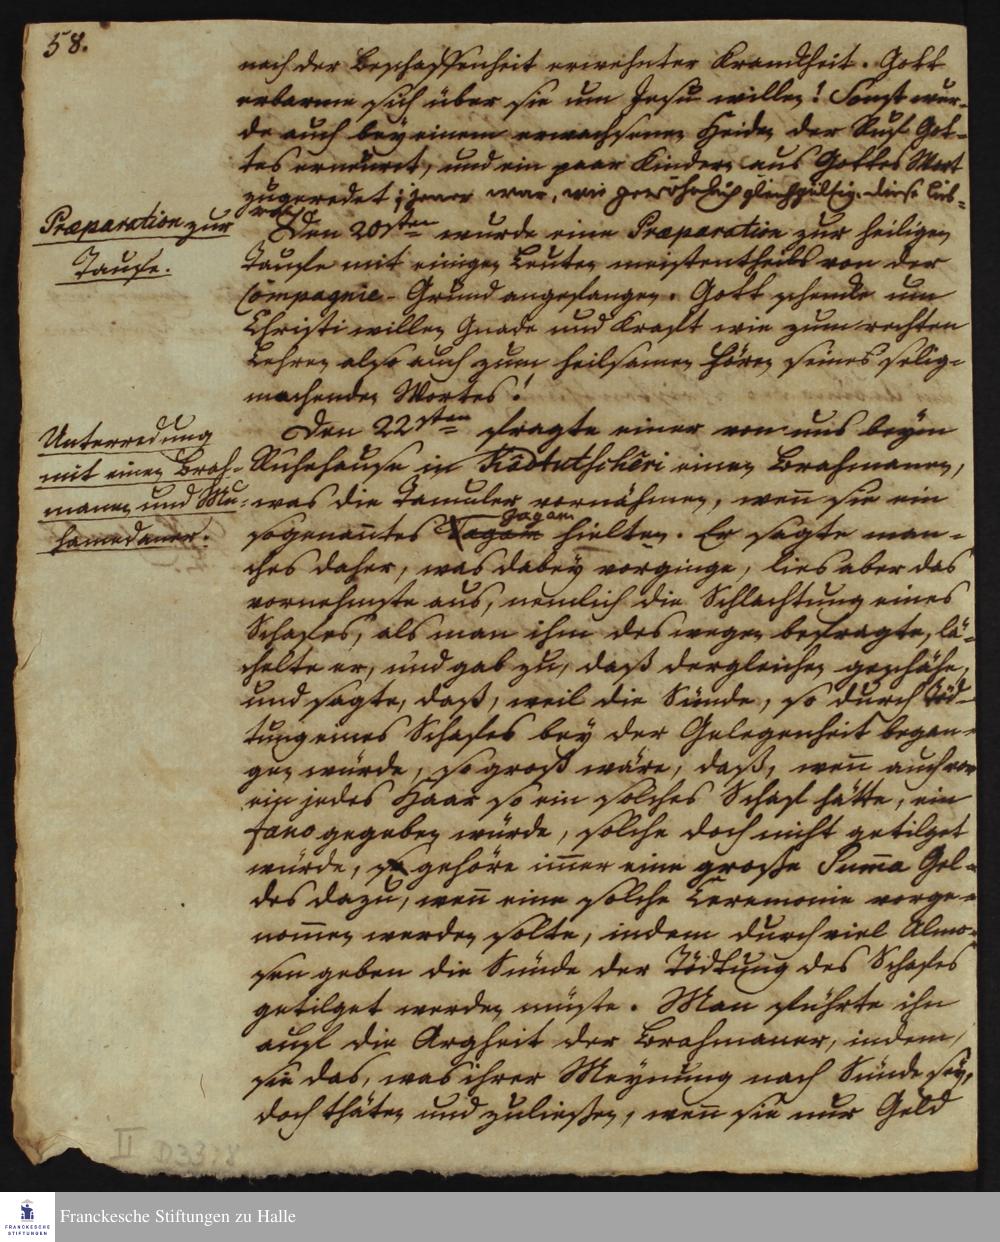 58.
nach der Beschaffenheit erwehnter Kranckheit. Gott
erbarme sich über sie um Jesu willen! Sonst wur-
de auch bey einem erwachsenen Heiden der Ruf Got-
tes erneuret, und ein paar Kindern aus Gottes Wort
zugeredet; jener war, wie gewöhnlich gleichgültig. diese lieb-
reich.
Præparation zur
Taufe.
Den 20sten wurde eine Præparation zur heiligen
Taufe mit einigen Leuten meistentheils von der
Compagnie-Grund angefangen. Gott schencke um
Christi willen Gnade und Kraft wie zum rechten
Lehren also auch zum heilsamen Hören seines selig-
machenden Wortes!
Unterredung
mit einen Brah-
manen und Mu-
hamedaner.
Den 22sten fragte einer von uns beym
Ruhehause in Kâdtutschêri einen Brahmanen,
was die Tamuler vornähmen, wen̅ sie ein
sogenan̅tes Jagam hielten. Er sagte man-
ches daher, was dabey vorginge, lies aber das
vornehmste aus, nemlich die Schlachtung eines
Schafes, als man ihm deswegen befragte, lä-
chelte er, und gab zu, daß dergleichen geschähe,
und sagte, daß, weil die Sünde, so durch Töd-
tung eines Schafes bey der Gelegenheit began-
gen würde, so groß wäre, daß, wen̅ auch vor
ein jedes Haar so ein solches Schaf hätte, ein
fano gegeben würde, solche doch nicht getilget
würde, so gehöre im̅er eine große Sum̅a Gel-
des dazu, wen̅ eine solche Ceremonie vorge-
nom̅en werden solte, indem durch viel Almo-
sen geben die Sünde der Tödtung des Schafes
getilget werden müste. Man führte ihn
auf die Argheit der Brahmaner, indem
sie das, was ihrer Meynung nach Sünde sey,
doch thäten und zuließen, wen̅ sie nur Geld
II D3378
Franckesche Stiftungen zu Halle
FRANCKESCHE
STIFTUNGEN